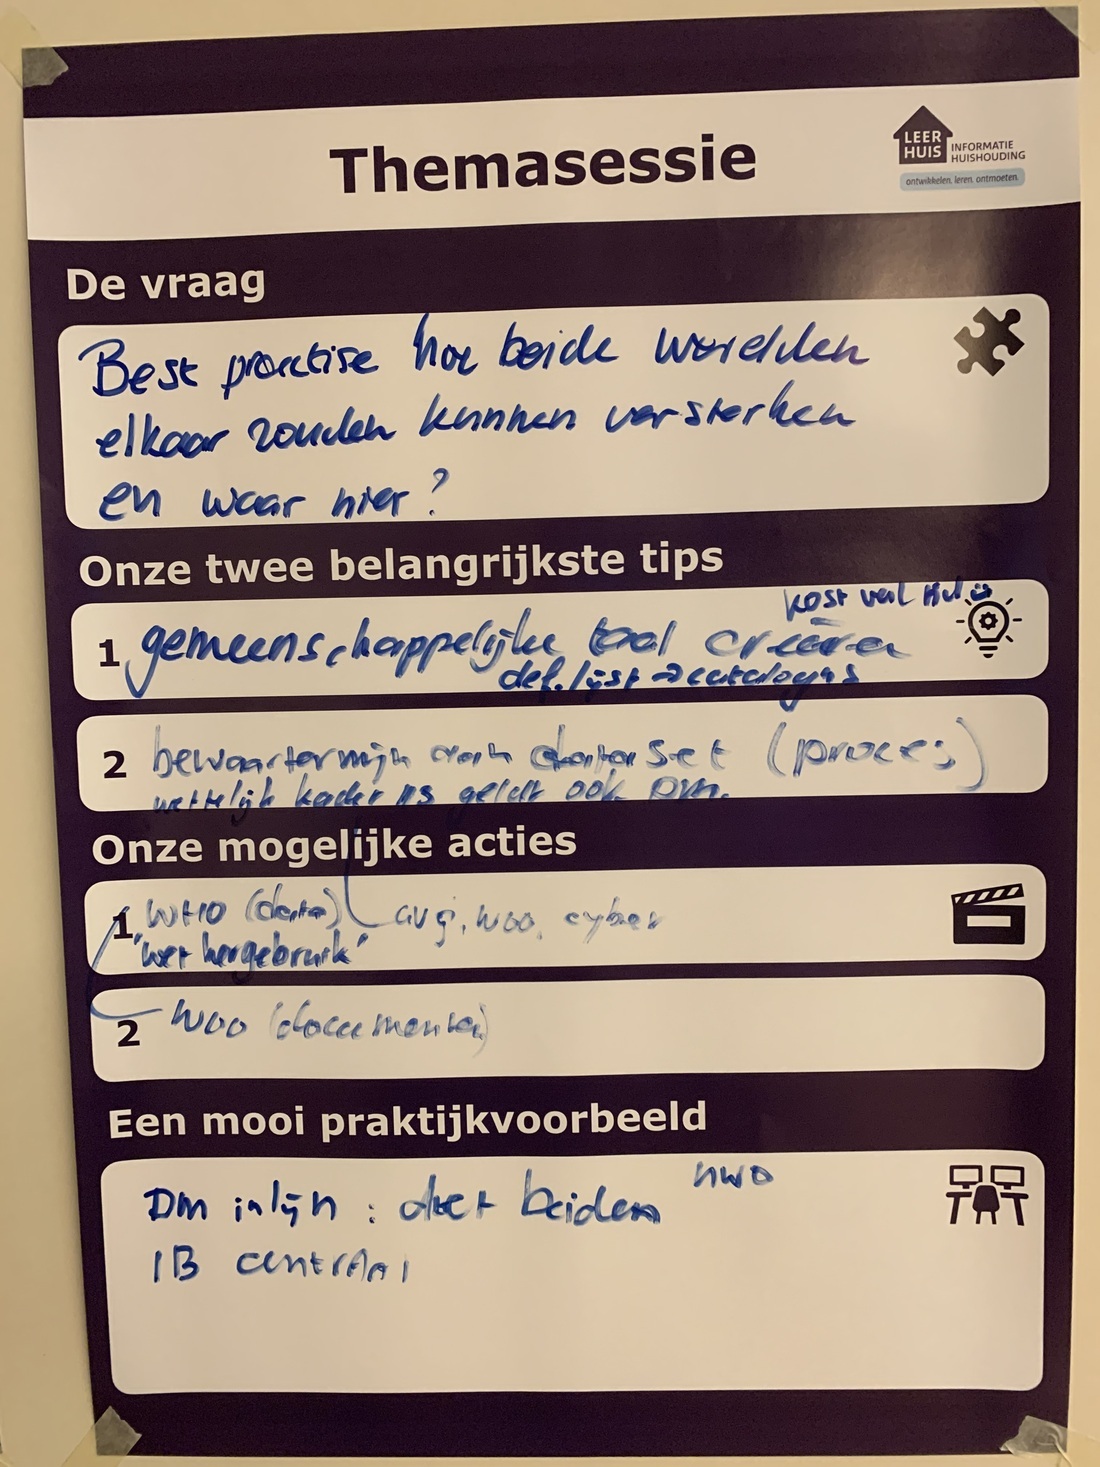 Themasessie
LEER
HUIS
INFORMATIE
HUISHOUDING
ontwikkelen. leren. ontmoeten.
De vraag
Best practise hoe beide werelden
elkaar zouden kunnen versterken
en waar hier?
Onze twee belangrijkste tips
kost veel tijd
1 gemeenschappelijke taal creëren
def.lijst → catalogus
2 bewaartermijn aan dataset (proces)
wettelijk kader is geldt ook
Onze mogelijke acties
1 WHO (data) avg, woo, cyber
"wet hergebruik"
2 Woo (documenten)
Een mooi praktijkvoorbeeld
NWO
DM in lijn : doet beiden
IB centraal